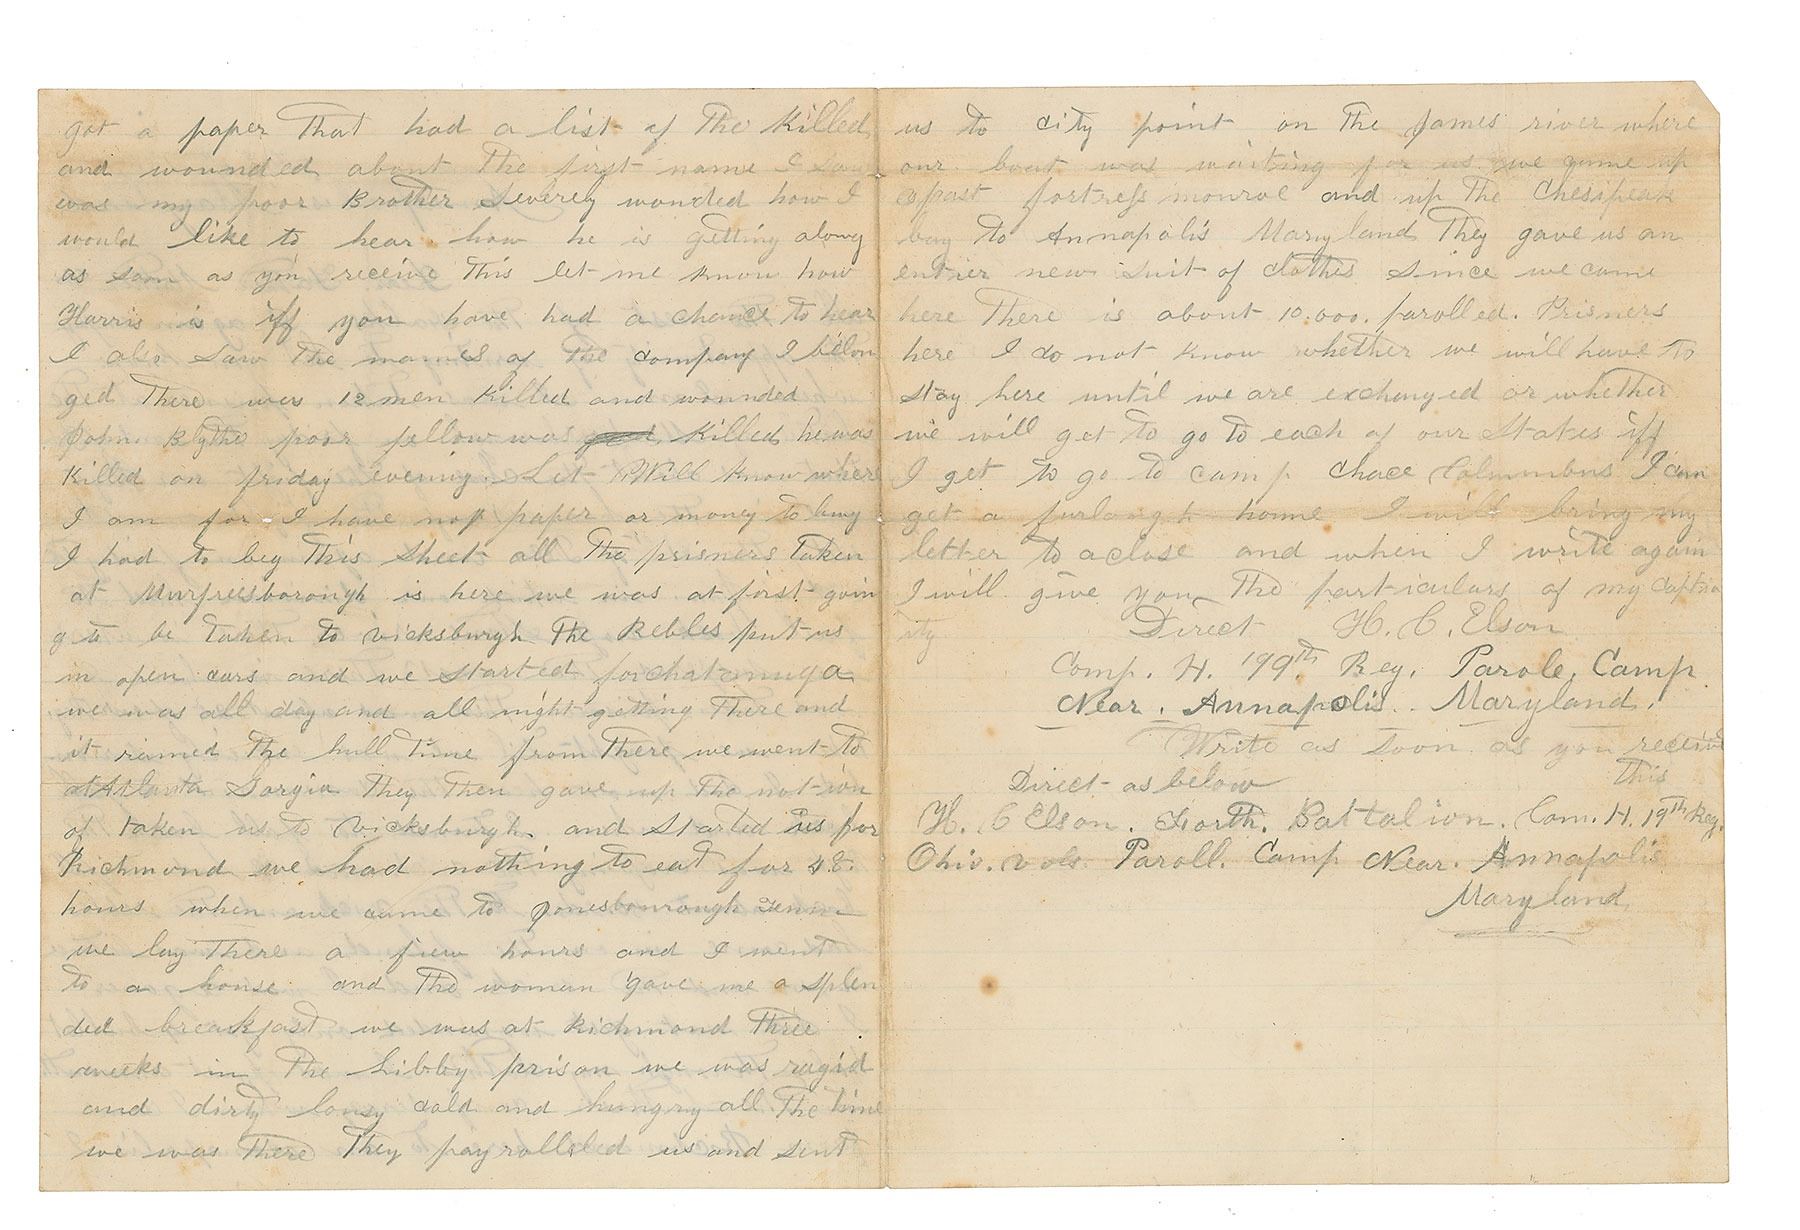 got a paper that had a list of the killed
and wounded about the first name I saw
was my poor Brother Severely wonded how I
would like to hear how he is getting along
as soon as you receive this let me know how
Harris is iff you have had a chance to hear
I also saw the names of the company I belon
ged There was 12 men killed and wounded
John Blythe poor fellow was killed he was
killed on friday evening. Let Will know where
I am for I have not paper or money to buy
I had to beg this sheet all the prisners taken
at Murfreesborough is here we was at first goin
g to be taken to vicksburgh The Rebles put us
in open cars and we started for chatanuga
we was all day and all night getting There and
it rained the hull time from there we went to
at Atlanta Gorgia They Then gave up the notion
of taken us to Vicksburgh and started us for
Richmond we had nothing to eat for 48.
hours when we came to Jonesbourough Tenn
we lay There a few hours and I went
to a house and the woman gave me a splen
ded breakfast we was at Richmond Three
weeks in the Libby prison we was ragid
and dirty lousy cold and hungry all the time
we was there They payrolleled us and sent
us to city point on the James river where
our boat was waiting for us we came up
apast fortress monroe and up the Chesipeak
bay to Annapolis Maryland They gave us an
entier new suit of clothes since we came
here There is about 10.000. parolled. Prisners
here I do not know whether we will have to
stay here until we are exchanged or whether
we will get to go to each of our States iff
I get to go to camp Chace Columbus I can
get a furlough home I will bring my
letter to a close and when I write again
I will give you the particulars of my captiv
ity
Direct H. C. Elson
Comp. H. 199th Reg. Parole. Camp
Near. Annapolis. Maryland.
Write as soon as you receive
this
Direct as below
H. C Elson. Forth. Battalion. Com. H. 19th Reg.
Ohio. vols Paroll. Camp Near. Annapolis
Maryland